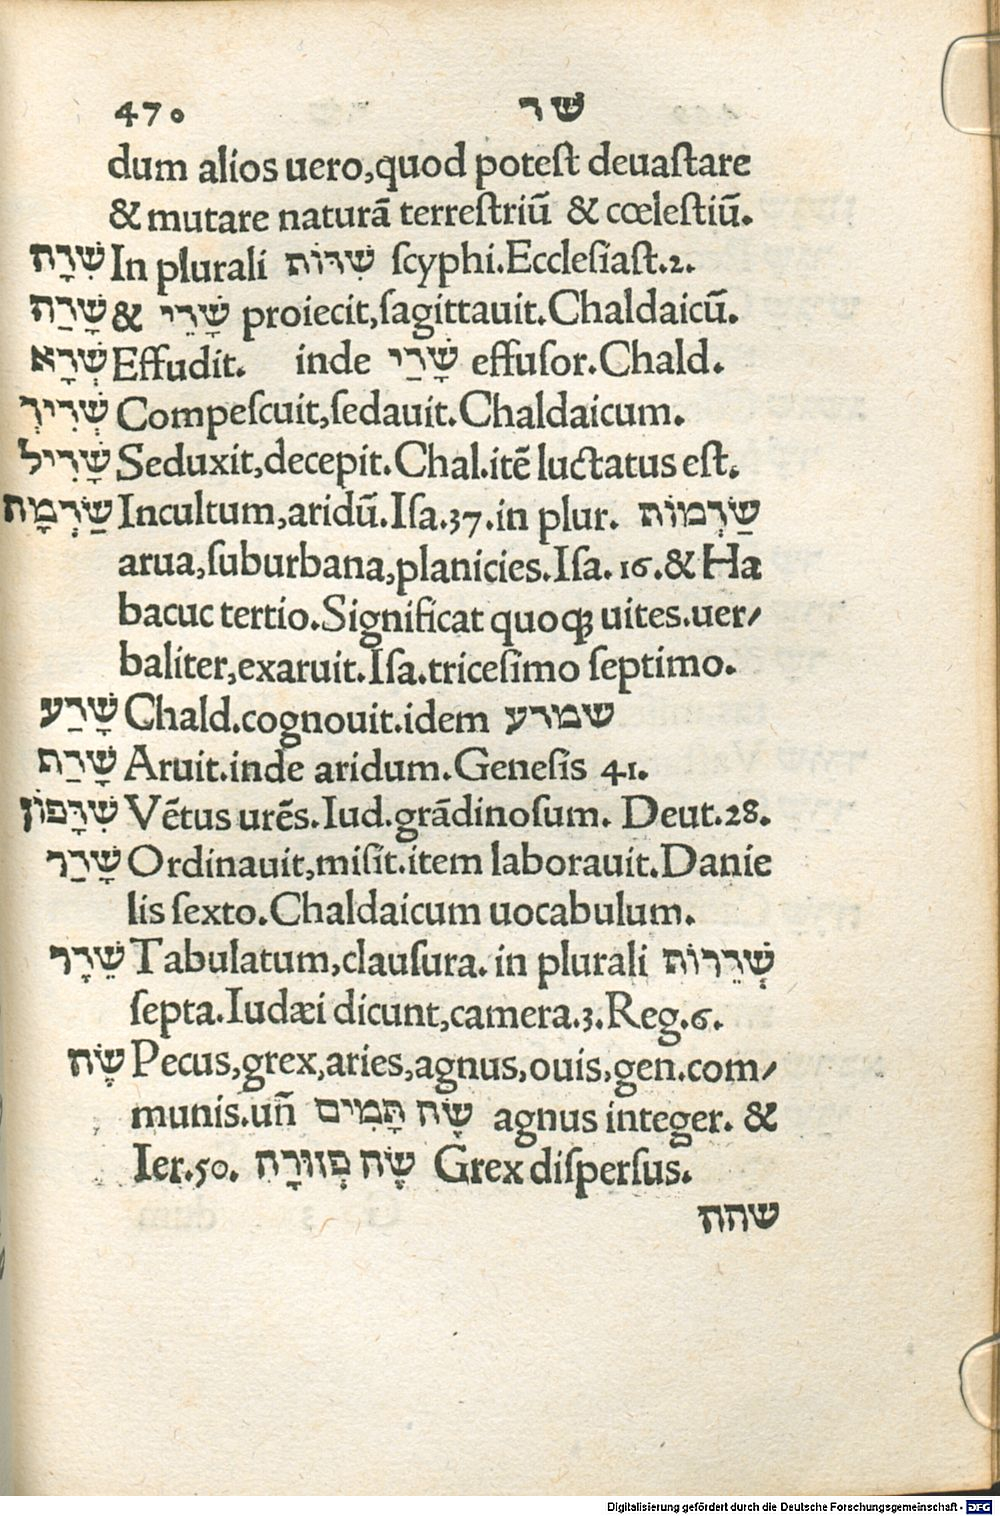 470 שד
dum alios uero,quod potest deuastare
& mutare naturā terrestriū & cœlestiū.
שִׁדָּה In plurali שִׁדּוֹת scyphi.Ecclesiast.2.
שָׁדַה & שָׁדֵי proiecit,sagittauit.Chaldaicū.
שְׁדָא Effudit. inde שָׁדַי effusor.Chald.
שְׁדִיךְ Compescuit,sedauit.Chaldaicum.
שָׁדִיל Seduxit,decepit.Chal.itē luctatus est.
שַׁדְמָה Incultum,aridū.Isa.37.in plur. שַׁדְמוֹת
arua,suburbana,planicies.Isa.16.& Ha
bacuc tertio.Significat quoq; uites.uer/
baliter,exaruit.Isa.tricesimo septimo.
שָׁדַע Chald.cognouit.idem שמודע
שָׁדַף Aruit.inde aridum.Genesis 41.
שִׁדָּפוֹן Vētus urēs.Iud.grādinosum. Deut.28.
שָׁדַר Ordinauit,misit.item laborauit.Danie
lis sexto.Chaldaicum uocabulum.
שֵׁדָר Tabulatum,clausura.in plurali שְׁדֵרוֹת
septa.Iudæi dicunt,camera.3.Reg.6.
שֶׂה Pecus,grex,aries,agnus,ouis,gen.com/
munis.uñ שֶׂה תָּמִים agnus integer. &
Ier.50. שֶׂה פְזוּרָה Grex dispersus.
שהה
Digitalisierung gefördert durch die Deutsche Forschungsgemeinschaft - DFG